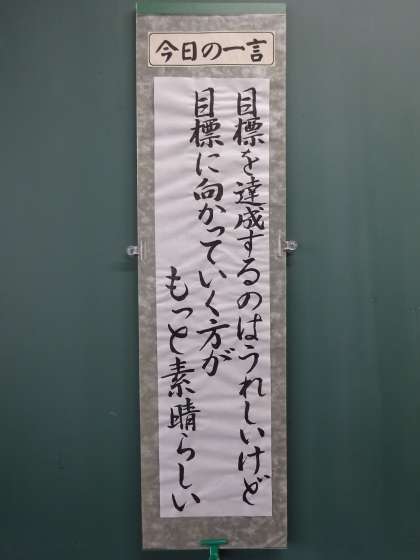 今日の一言
目標を達成するのはうれしいけど
目標に向かっていく方が
もっと素晴らしい